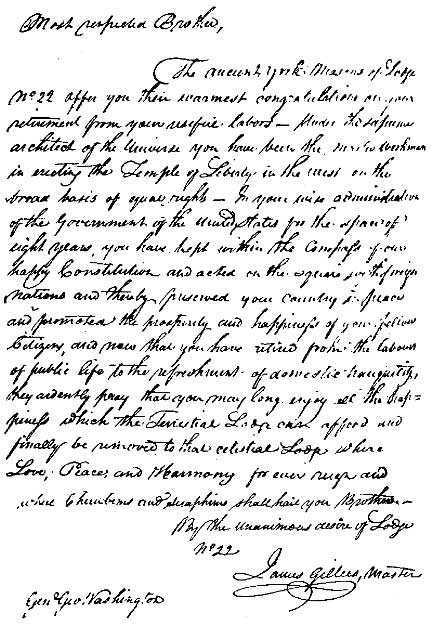 Most respected Brother,
The ancient York Masons of Lodge
No 22 offer you their warmest congratulations on your
retirement from your useful labors — Under the supreme
architect of the Universe you have been the master workman
in erecting the Temple of Liberty in the west on the
broad basis of equal rights — In your wise administration
of the Government of the United States for the space of
eight years, you have kept within the Compass of our
happy Constitution and acted on the square with foreign
nations and thereby preserved your country in peace
and promoted the prosperity and happiness of your fellow
Citizens, and now that you have retired from the labours
of public life to the refreshment of domestic tranquility,
they ardently pray that you may long enjoy all the hap=
piness which the Terrestial Lodge can afford and
finally be removed to that celestial Lodge where
Love, Peace, and Harmony for ever reign and
where Cherubims and Seraphims shall hail you Brother —
By the unanimous desire of Lodge
No 22
James Gillies, Master
Genl Geo. Washington